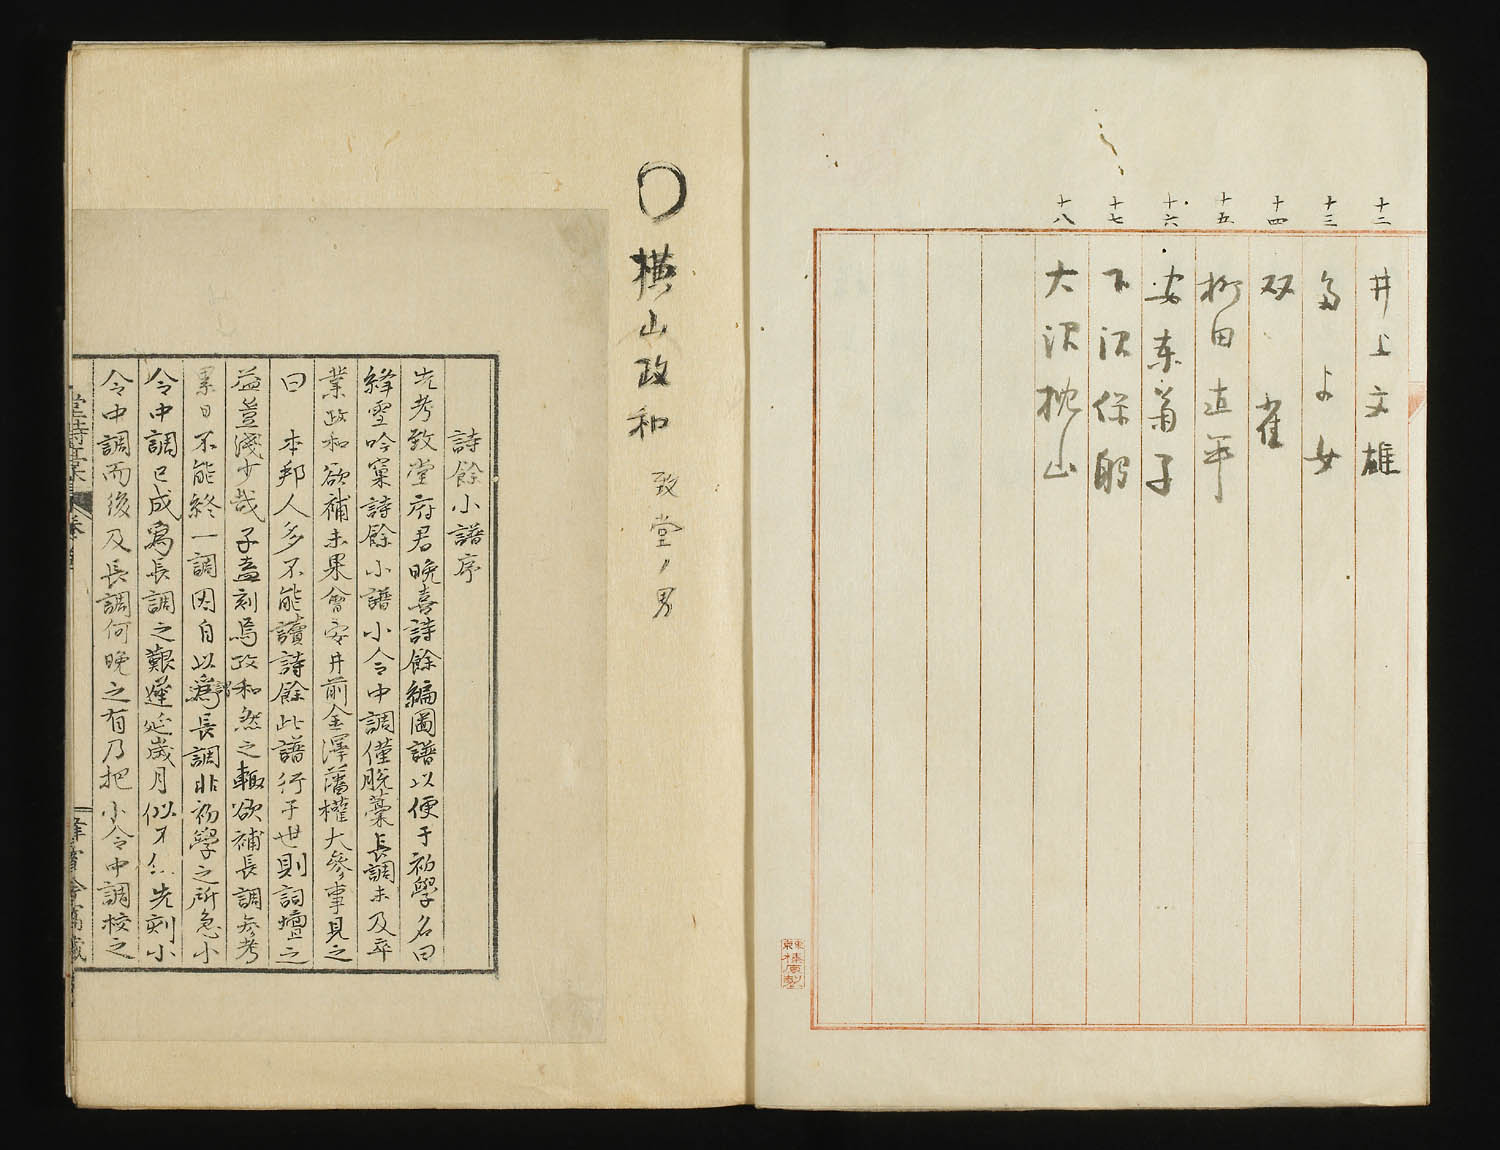 十二
井上文雄
十三
よ女
十四
双雀
十五
柳田直平
十六
安東菊子
十七
下沢保躬
十八
大沢枕山
東京榛原製
横山政和
致堂ノ男
詩餘小譜序
先考致堂府君晩喜詩餘編圖譜以便于初學名曰
絳雪吟窠詩餘小譜小令中調僅脱藁長調未及卒
業政和欲補未果會安井前金澤藩權大參事見之
曰 本邦人多不能讀詩餘此譜行于世則詞壇之
益豈淺少哉子盍刻焉政和然之輙欲補長調參考
累日不能終一調因自以爲長調非初學之所急小
令中調已成寫長調之艱遲延歳月似才仁先刻小
令中調而後及長調何晩之有乃把小令中調校之